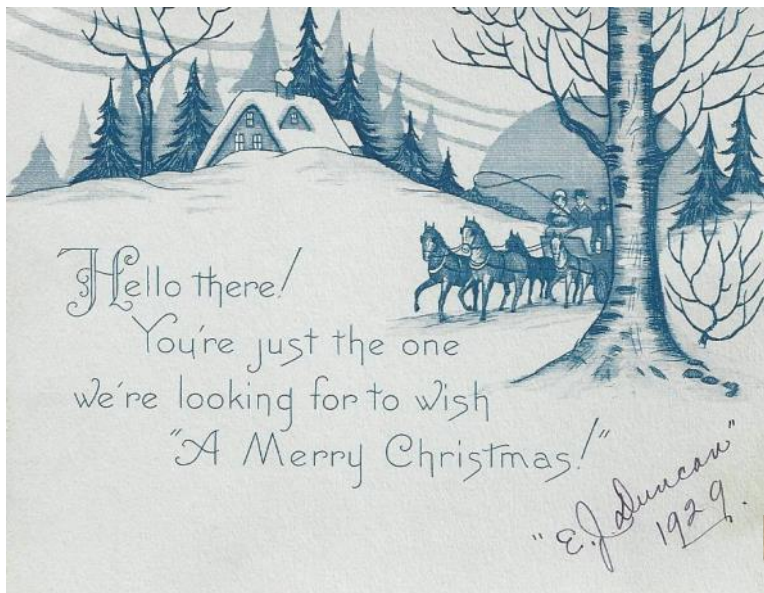 Hello there!
You're just the one
we're looking for to wish
"A Merry Christmas!"
"E. J. Duncan"
1929.